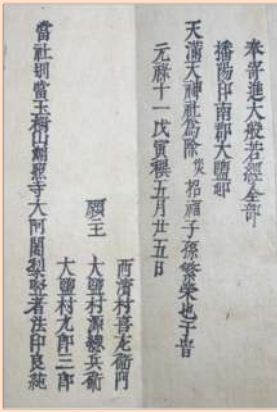 奉寄進大般若經全部
播陽印南郡大塩郷
天満天神社為除災招福子孫繁栄也于旹
元禄十一戊寅稷五月廿五日
西濱村喜左衛門
願主 大塩村源兵衛
大塩村九郎三郎
當社別當玉楯山遍照寺大阿闍梨竪者法印良純